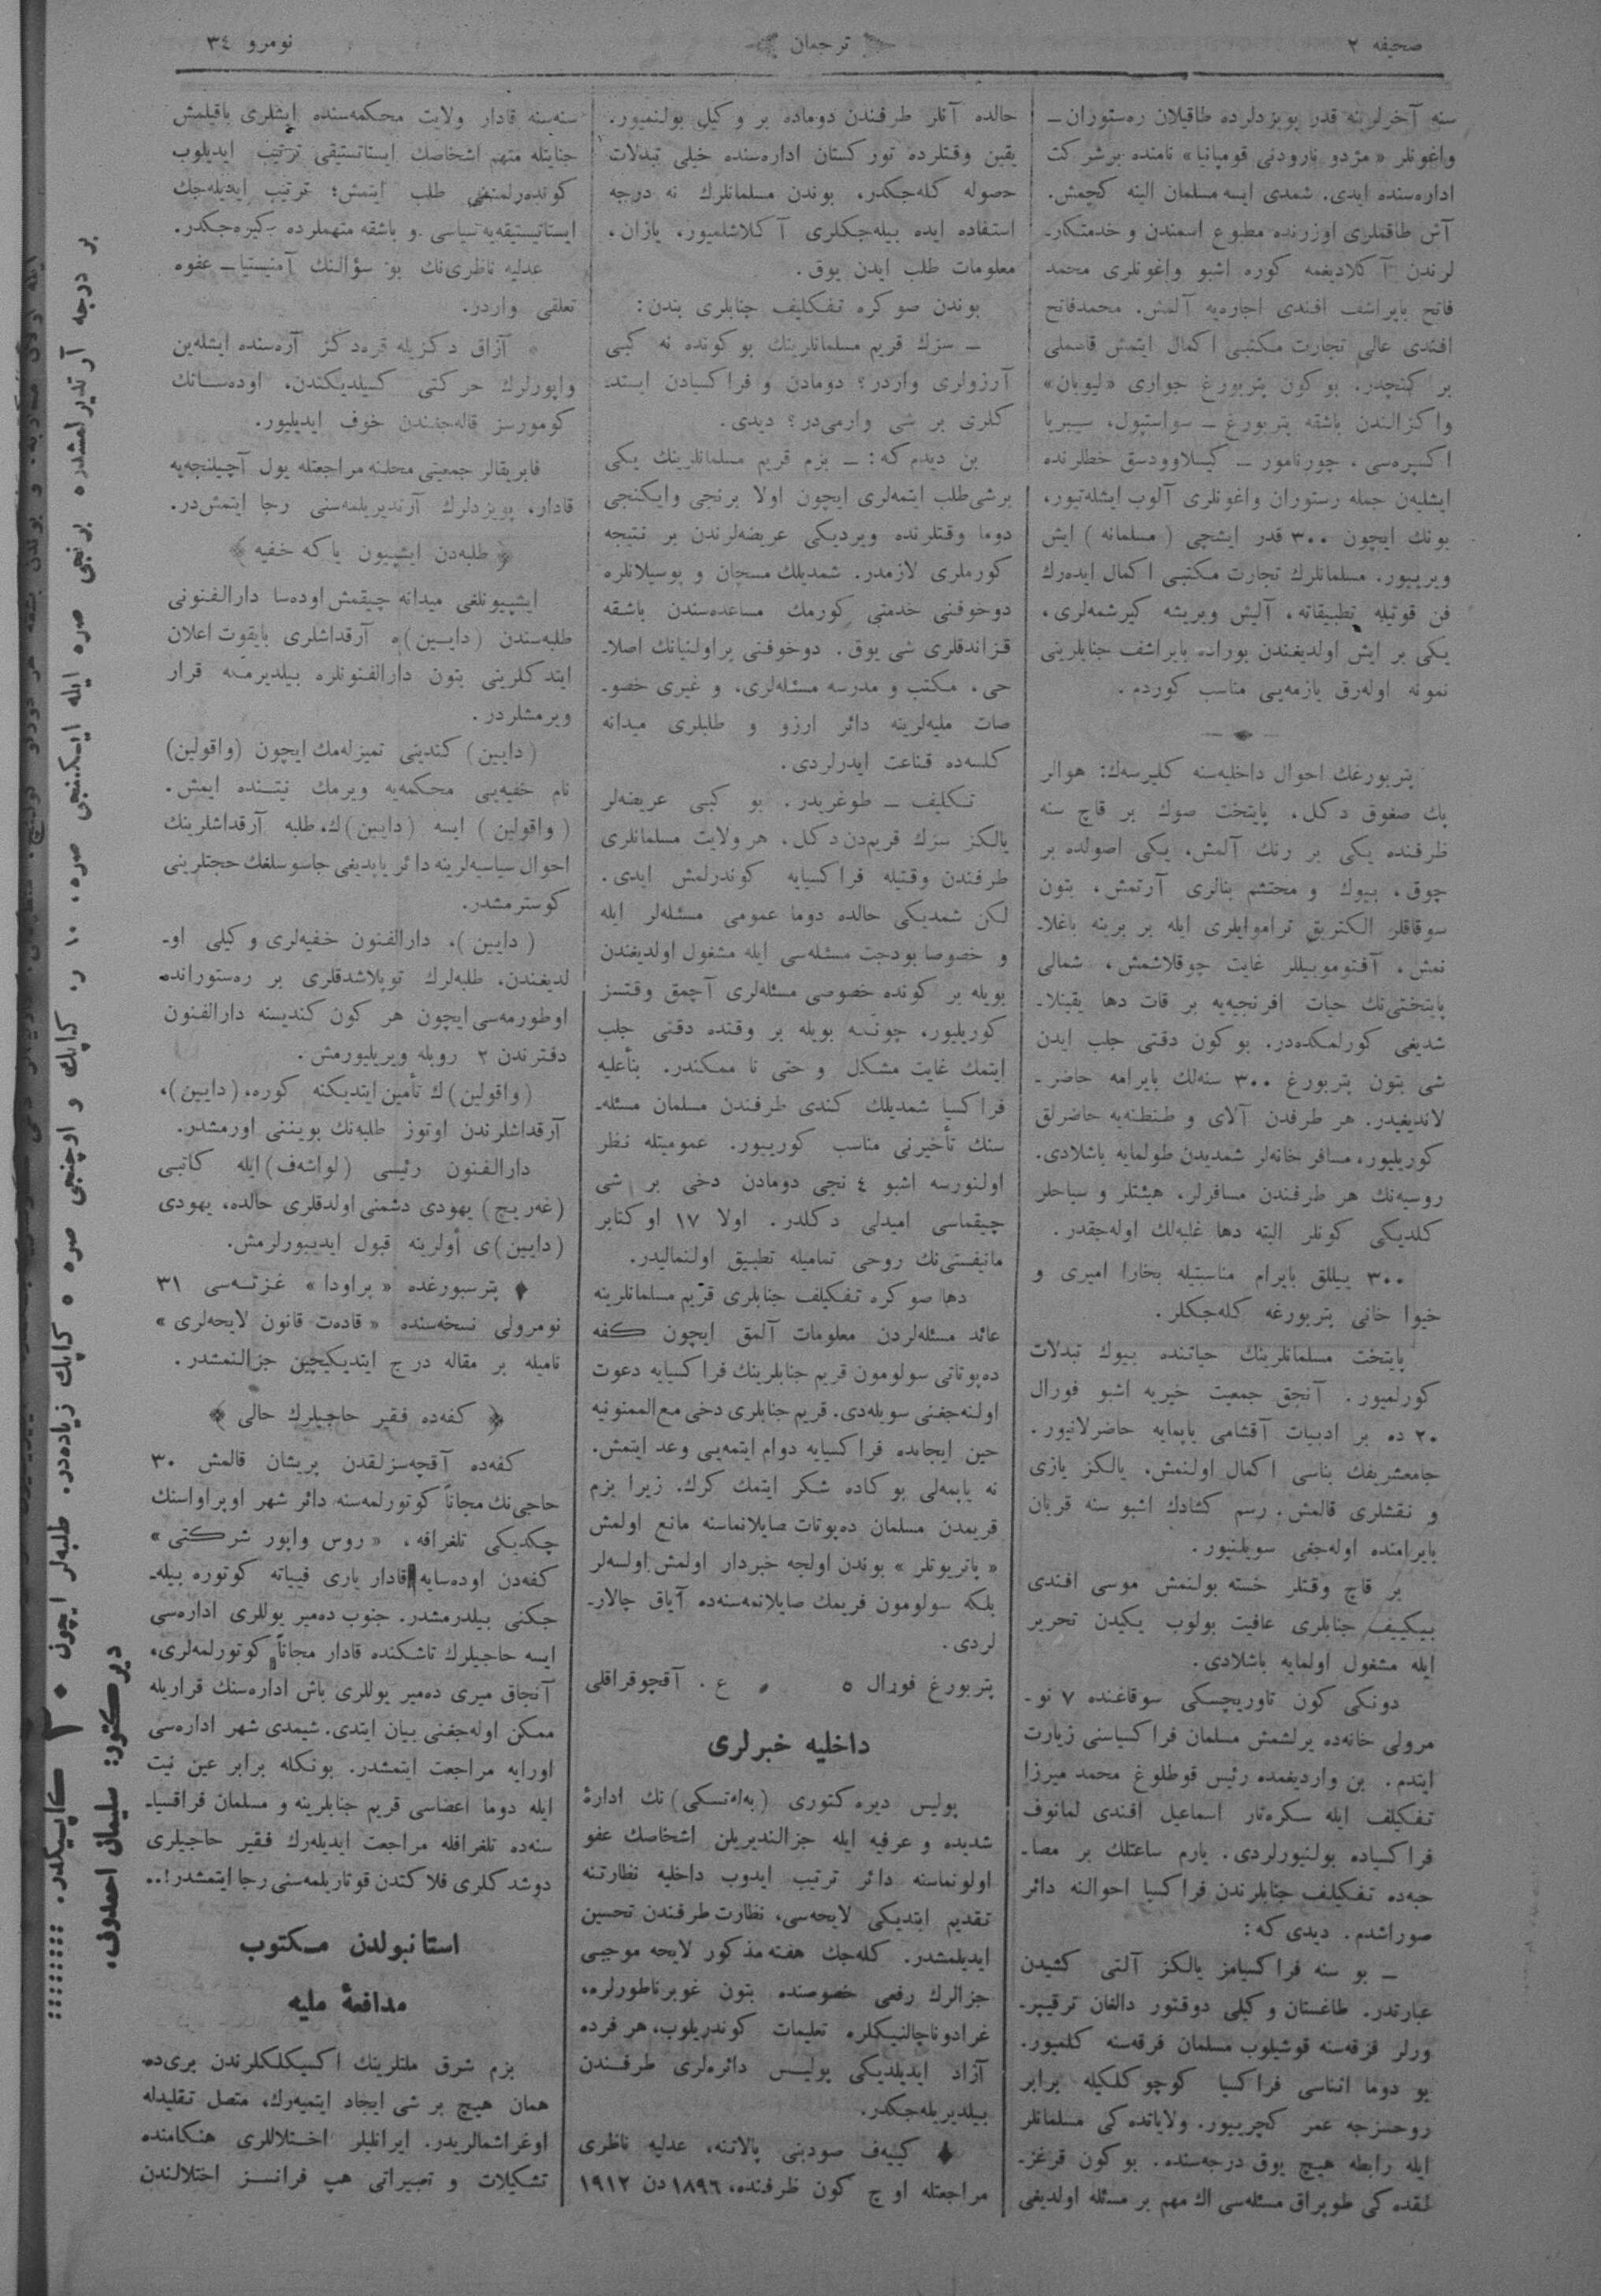 صحیفه ٢
ترجمان
نومرو ٣٤
سنه آخرلرینه قدر پویزدلرده طاقیلان ره‌ستوران ـ
واغونلر «مژدو نارودنی قومپانیا» نامنده بر شرکت
اداره‌سنده ایدی. شمدی ایسه مسلمان الینه کچمش.
آش طاقملری اوزرنده مطبوع اسمندن و خدمتکارـ
لرندن آکلادیغمه کوره اشبو واغونلری محمد
فاتح بایراشف افندی اجاره‌یه آلمش. محمدفاتح
افندی عالی تجارت مکتبی اکمال ایتمش قاسملی
بر کنجدر. بو کون پتربورغ جواری «لیوبان»
واکزالندن باشقه پتربورغ ـ سواستپول، سیبریا
اکسپره‌سی، چورنامور ـ کیسلاوودسق خطلرنده
ایشلیه‌ن جمله رستوران واغونلری آلوب ایشله‌تیور،
بونك ایچون ٣٠٠ قدر ایشچی (مسلمانه) ایش
ویرییور. مسلمانلرك تجارت مکتبی اکمال ایده‌رك
فن قوتیله تطبیقاته، آلیش ویریشه کیرشمه‌لری،
یکی بر ایش اولدیغندن بوراده بایراشف جنابلرینی
نمونه اوله‌رق یازمه‌یی مناسب کوردم.
پتربورغك احوال داخلیه‌سنه کلیرسه‌ك: هوالر
پك صغوق دکل، پایتخت صوك بر قاچ سنه
ظرفنده یکی بر رنك آلمش، یکی اصولده بر
چوق، بیوك و محتشم بنالری آرتمش، بتون
سوقاقلر الکتریق تراموایلری ایله بر برینه باغلاـ
نمش، آفتوموبیللر غایت چوقلاشمش، شمالی
پایتختی‌نك حیات افرنجیه‌یه بر قات دها یقینلاـ
شدیغی کورلمکده‌در. بو کون دقتی جلب ایدن
شی بتون پتربورغ ٣٠٠ سنه‌لك بایرامه حاضرـ
لاندیغیدر. هر طرفدن آلای و طنطنه‌یه حاضرلق
کوریلیور، مسافر خانه‌لر شمدیدن طولمایه باشلادی.
روسیه‌نك هر طرفندن مسافرلر، هیئتلر و سیاحلر
کلدیکی کونلر البته دها غلبه‌لك اوله‌جقدر.
٣٠٠ ییللق بایرام مناسبتیله بخارا امیری و
خیوا خانی پتربورغه کله‌جکلر.
پایتخت مسلمانلرینك حیاتنده بیوك تبدلات
کورلمیور. آنجق جمعیت خیریه اشبو فورال
٢٠ ده بر ادبیات آقشامی یاپمایه حاضرلانیور.
جامعشریفك بناسی اکمال اولنمش، یالکز یازی
و نقشلری قالمش. رسم کشادك اشبو سنه قربان
بایرامنده اوله‌جغی سویلنیور.
بر قاچ وقتلر خسته بولنمش موسی افندی
بیکییف جنابلری عافیت بولوب یکیدن تحریر
ایله مشغول اولمایه باشلادی.
دونکی کون تاوریچسکی سوقاغنده ٧ نوـ
مرولی خانه‌ده یرلشمش مسلمان فراکسیاسنی زیارت
ایتدم. بن واردیغمده رئیس قوطلوغ محمد میرزا
تفکیلف ایله سکره‌تار اسماعیل افندی لمانوف
فراکسیاده بولنیورلردی. یارم ساعتلك بر مصاـ
حبه‌ده تفکیلف جنابلرندن فراکسیا احوالنه دائر
صوراشدم. دیدی که:
ـ بو سنه فراکسیامز یالکز آلتی کشیدن
عبارتدر. طاغستان وکیلی دوقتور دالغان ترقیپرـ
ورلر فرقه‌سنه قوشیلوب مسلمان فرقه‌سنه کلمیور.
بو دوما اثناسی فراکسیا کوچوکلکیله برابر
روحسزجه عمر کچرییور. ولایاتده‌کی مسلمانلر
ایله رابطه هیچ یوق درجه‌سنده. بو کون قرغزـ
لقده‌کی طوپراق مسئله‌سی اك مهم بر مسئله اولدیغی
حالده آنلر طرفندن دوماده بر وکیل بولنمیور.
یقین وقتلرده تورکستان اداره‌سنده خیلی تبدلات
حصوله کله‌جکدر، بوندن مسلمانلرك نه درجه
استفاده ایده بیله‌جکلری آکلاشلمیور، یازان،
معلومات طلب ایدن یوق.
بوندن صوکره تفکیلیف جنابلری بندن:
ـ سزك قریم مسلمانلرینك بو کونده نه کبی
آرزولری واردر؟ دومادن و فراکسیادن ایستدـ
کلری بر شی وارمی‌در؟ دیدی.
بن دیدم که: ـ بزم قریم مسلمانلرینك یکی
برشی طلب ایتمه‌لری ایچون اولا برنجی وایکنجی
دوما وقتلرنده ویردیکی عریضه‌لرندن بر نتیجه
کورملری لازمدر. شمدیلك مسجان و پوسیلانلره
دوخوفنی خدمتی کورمك مساعده‌سندن باشقه
قزاندقلری شی یوق. دوخوفنی پراولنیانك اصلاـ
حی، مکتب و مدرسه مسئله‌لری، و غیری خصوـ
صات ملیه‌لرینه دائر ارزو و طلبلری میدانه
کلسه‌ده قناعت ایدرلردی.
تکلیف ـ طوغریدر. بو کبی عریضه‌لر
یالکز سزك قریم‌دن دکل، هر ولایت مسلمانلری
طرفندن وقتیله فراکسیایه کوندرلمش ایدی.
لکن شمدیکی حالده دوما عمومی مسئله‌لر ایله
و خصوصا بودجت مسئله‌سی ایله مشغول اولدیغندن
بویله بر کونده خصوصی مسئله‌لری آچمق وقتسز
کوریلیور، چونکه بویله بر وقتده دقتی جلب
ایتمك غایت مشکل و حتی نا ممکندر. بنأعلیه
فراکسیا شمدیلك کندی طرفندن مسلمان مسئله‌ـ
سنك تأخیرنی مناسب کورییور. عمومیتله نظر
اولنورسه اشبو ٤ نجی دومادن دخی بر شی
چیقماسی امیدلی دکلدر. اولا ١٧ اوکتابر
مانیفستی‌نك روحی تمامیله تطبیق اولنمالیدر.
دها صوکره تفکیلف جنابلری قریم مسلمانلرینه
عائد مسئله‌لردن معلومات آلمق ایچون کفه
ده‌پوتاتی سولومون قریم جنابلرینك فراکسیایه دعوت
اولنه‌جغنی سویله‌دی. قریم جنابلری دخی مع الممنونیه
حین ایجابده فراکسیایه دوام ایتمه‌یی وعد ایتمش.
نه یاپمه‌لی بوکاده شکر ایتمك کرك. زیرا بزم
قریمدن مسلمان ده‌پوتات صایلانماسنه مانع اولمش
«پاتریوتلر» بوندن اولجه خبردار اولمش اولسه‌لر
بلکه سولومون قریمك صایلانمه‌سنه‌ده آیاق چالارـ
لردی.
پتربورغ فورال ٥ ع. آقچوقراقلی
داخلیه خبرلری
پولیس دیره‌کتوری (به‌له‌تسکی) نك ادارهٔ
شدیده و عرفیه ایله جزالندیریلن اشخاصك عفو
اولونماسنه دائر ترتیب ایدوب داخلیه نظارتنه
تقدیم ایتدیکی لایحه‌سی، نظارت طرفندن تحسین
ایدیلمشدر. کله‌جك هفته مذکور لایحه موجبی
جزالرك رفعی خصوصنده بتون غوبرناطورلره،
غرادوناچالنیکلره تعلیمات کوندریلوب، هر فرده
آزاد ایدیلدیکی پولیس دائره‌لری طرفندن
بیلدیریله‌جکدر.
♦ کییه‌ف صودبنی پالاتنه، عدلیه ناظری
مراجعتله اوچ کون ظرفنده، ١٨٩٦ دن ١٩١٢
سنه‌سنه قادار ولایت محکمه‌سنده ایشلری باقیلمش
جنایتله متهم اشخاصك ایستاتستیقی ترتیب ایدیلوب
کونده‌رلمه‌سنی طلب ایتمش؛ ترتیب ایدیله‌جك
ایستاتیستیقه‌یه سیاسی و باشقه متهملرده کیره‌جکدر.
عدلیه ناظری‌نك بو سؤالنك آمنیستیا ـ عفوه
تعلقی واردر.
* آزاق دکزیله قره‌دکز آره‌سنده ایشله‌ین
واپورلرك حرکتی کسیلدیکندن، اوده‌سانك
کومورسز قاله‌جغندن خوف ایدیلیور.
فابریقالر جمعیتی محلنه مراجعتله یول آچیلنجه‌یه
قادار، پویزدلرك آرتدیریلمه‌سنی رجا ایتمش‌در.
﴿ طلبه‌دن ایشپیون یا که خفیه ﴾
ایشپیونلغی میدانه چیقمش اوده‌سا دارالفنونی
طلبه‌سندن (دایین)ه آرقداشلری بایقوت اعلان
ایتدکلرینی بتون دارالفنونلره بیلدیرمکه قرار
ویرمشلردر.
(دایین) کندینی تمیزله‌مك ایچون (واقولین)
نام خفیه‌یی محکمه‌یه ویرمك نیتنده ایمش.
(واقولین) ایسه (دایین)ك، طلبه آرقداشلرینك
احوال سیاسیه‌لرینه دائر یاپدیغی جاسوسلغك حجتلرینی
کوسترمشدر.
(دایین)، دارالفنون خفیه‌لری وکیلی اوـ
لدیغندن، طلبه‌لرك توپلاشدقلری بر ره‌ستوراندہ
اوطورمه‌سی ایچون هر کون کندیسنه دارالفنون
دفترندن ٢ روبله ویریلیورمش.
(واقولین)ك تأمین ایتدیکنه کوره، (دایین)،
آرقداشلرندن اوتوز طلبه‌نك بویننی اورمشدر.
دارالفنون رئیسی (لواشه‌ف) ایله کاتبی
(غه‌ریچ) یهودی دشمنی اولدقلری حالده، یهودی
(دایین)ی أولرینه قبول ایدییورلرمش.
♦ پترسبورغده «پراودا» غزته‌سی ٣١
نومرولی نسخه‌سنده «قاده‌ت قانون لایحه‌لری»
نامیله بر مقاله درج ایتدیکیچین جزالنمشدر.
﴿ کفه‌ده فقیر حاجیلرك حالی ﴾
کفه‌ده آقچه‌سزلقدن پریشان قالمش ٣٠
حاجی‌نك مجاناً کوتورلمه‌سنه دائر شهر اوپراواسنك
چکدیکی تلغرافه، «روس واپور شرکتی»
کفه‌دن اوده‌سایه قادار یاری فییاته کوتوره بیله‌ـ
جکنی بیلدرمشدر. جنوب ده‌میر یوللری اداره‌سی
ایسه حاجیلرك تاشکنده قادار مجاناً کوتورلمه‌لری،
آنجاق میری ده‌میر یوللری باش اداره‌سنك قراریله
ممکن اوله‌جغنی بیان ایتدی. شیمدی شهر اداره‌سی
اورایه مراجعت ایتمشدر. بونکله برابر عین نیت
ایله دوما اعضاسی قریم جنابلرینه و مسلمان فراقسیاـ
سنه‌ده تلغرافله مراجعت ایدیله‌رك فقیر حاجیلری
دوشدکلری فلاکتدن قوتاریلمه‌سنی رجا ایتمشدر!..
استانبولدن مکتوب
مدافعهٔ ملیه
بزم شرق ملتلرینك اکسیکلکلرندن بری‌ده
همان هیچ بر شی ایجاد ایتمیه‌رك، متصل تقلیدله
اوغراشمالریدر. ایرانلیلر اختلاللری هنکامنده
تشکیلات و تعبیراتی هپ فرانسز اختلالندن
بر درجه آرتدیرلمشدر. برنجی صره ایله ایکینجی صره، ١٠ ر. کاپك و اوچنجی صره ٥ کاپك زیاده‌در. طلبه‌لر ایچون ٢٠ کاپیکدر.
دیرکتور: سلیمان احمدوف.